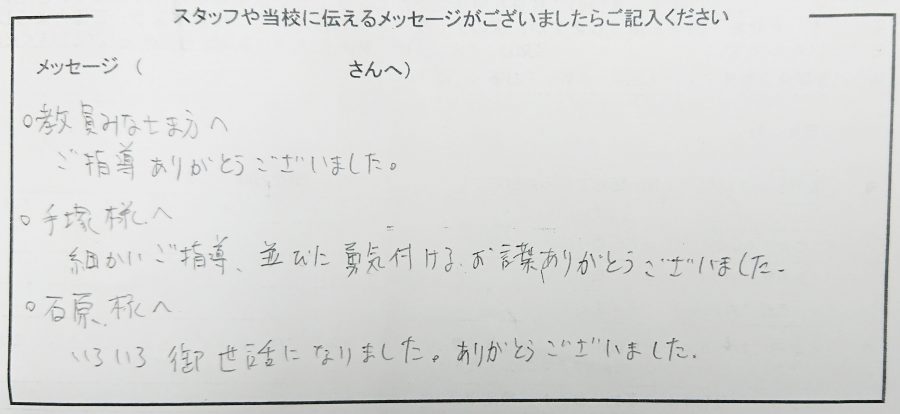 スタッフや当校に伝えるメッセージがございましたらご記入ください
メッセージ（　　　　　　　　　　さんへ）
○教員みなさま方へ
ご指導ありがとうございました。
○手塚様へ
細かいご指導、並びに勇気付けるお言葉ありがとうございました。
○石原様へ
いろいろ御世話になりました。ありがとうございました.